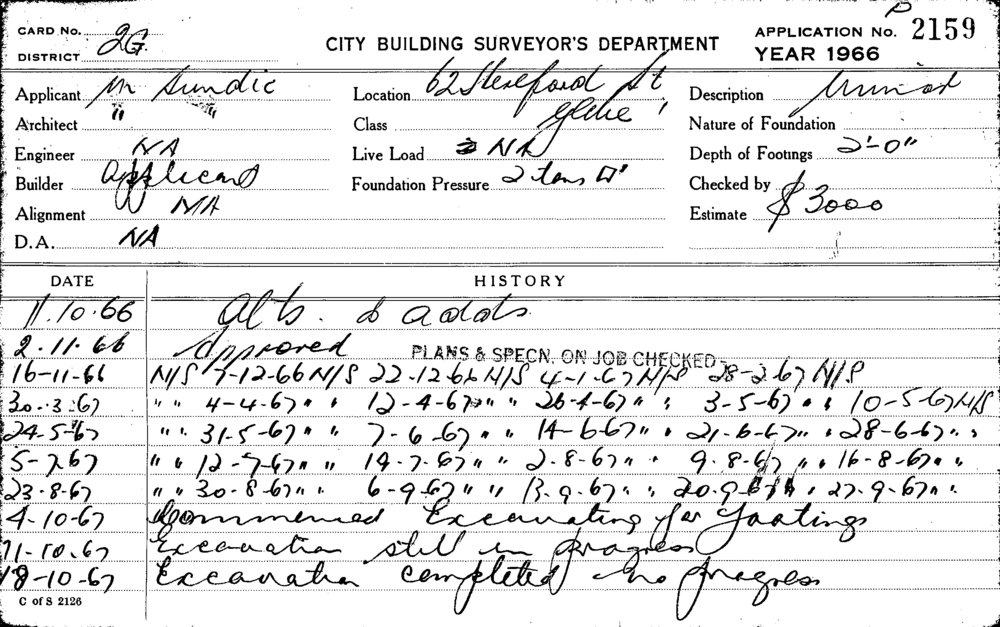 CARD No. 2G.
DISTRICT
CITY BUILDING SURVEYOR'S DEPARTMENT
APPLICATION No. P 2159
YEAR 1966
Applicant M Sundic Location 62 Hereford St Description
Architect " " Class Glebe Nature of Foundation
Engineer NA Live Load NA Depth of Footings 2'-0"
Builder Applicant Foundation Pressure 2 tons □' Checked by
Alignment NA Estimate $ 3000
D.A. NA
DATE HISTORY
11.10.66 Alts. & adds
2.11.66 Approved PLANS & SPECN. ON JOB CHECKED
16-11-66 N/S 7-12-66 N/S 22-12-66 N/S 4-1-67 N/S 28-2-67 N/S
30-3-67 " " 4-4-67 " " 12-4-67 " " 26-4-67 " " 3-5-67 " " 10-5-67 N/S
24-5-67 " " 31-5-67 " " 7-6-67 " " 14-6-67 " " 21-6-67 " " 28-6-67 " "
5-7-67 " " 12-7-67 " " 19-7-67 " " 2-8-67 " " 9-8-67 " " 16-8-67 " "
23-8-67 " " 30-8-67 " " 6-9-67 " " 13-9-67 " " 20-9-67 " " 27-9-67 " "
4-10-67 Commenced Excavating for footings
11-10-67 Excavation still in progress
18-10-67 Excavation completed no progress
C of S 2126